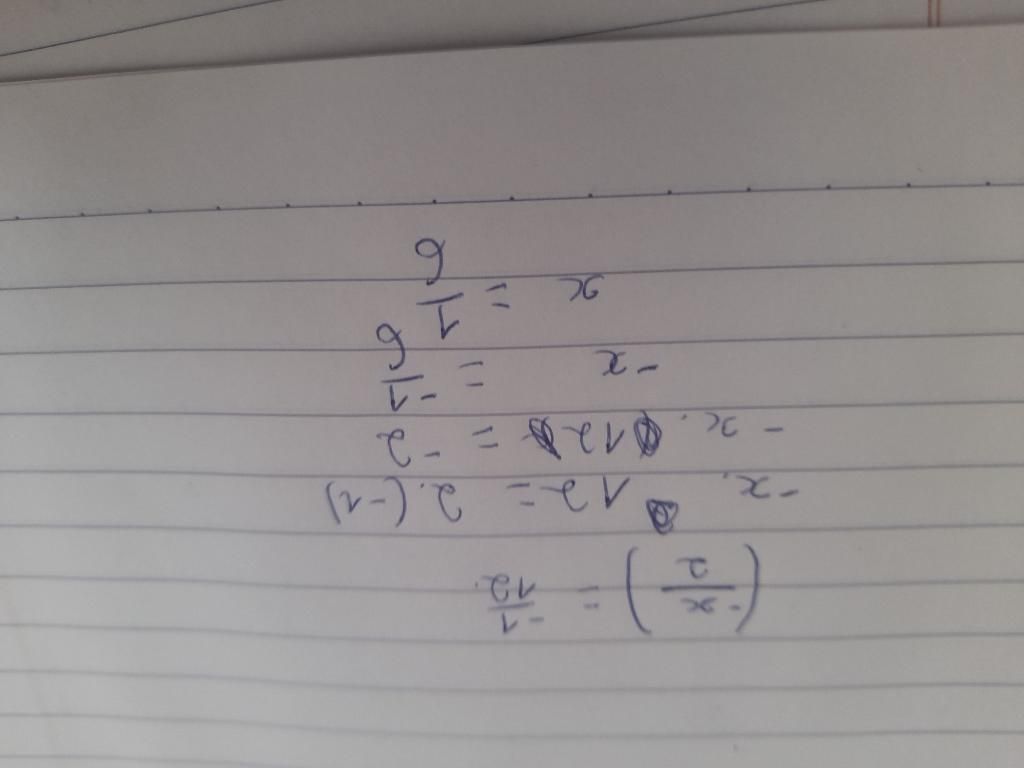 (-x/2) = -1/12
-x. 12 = 2.(-1)
-x. 12 = -2
-x = -1/6
x = 1/6